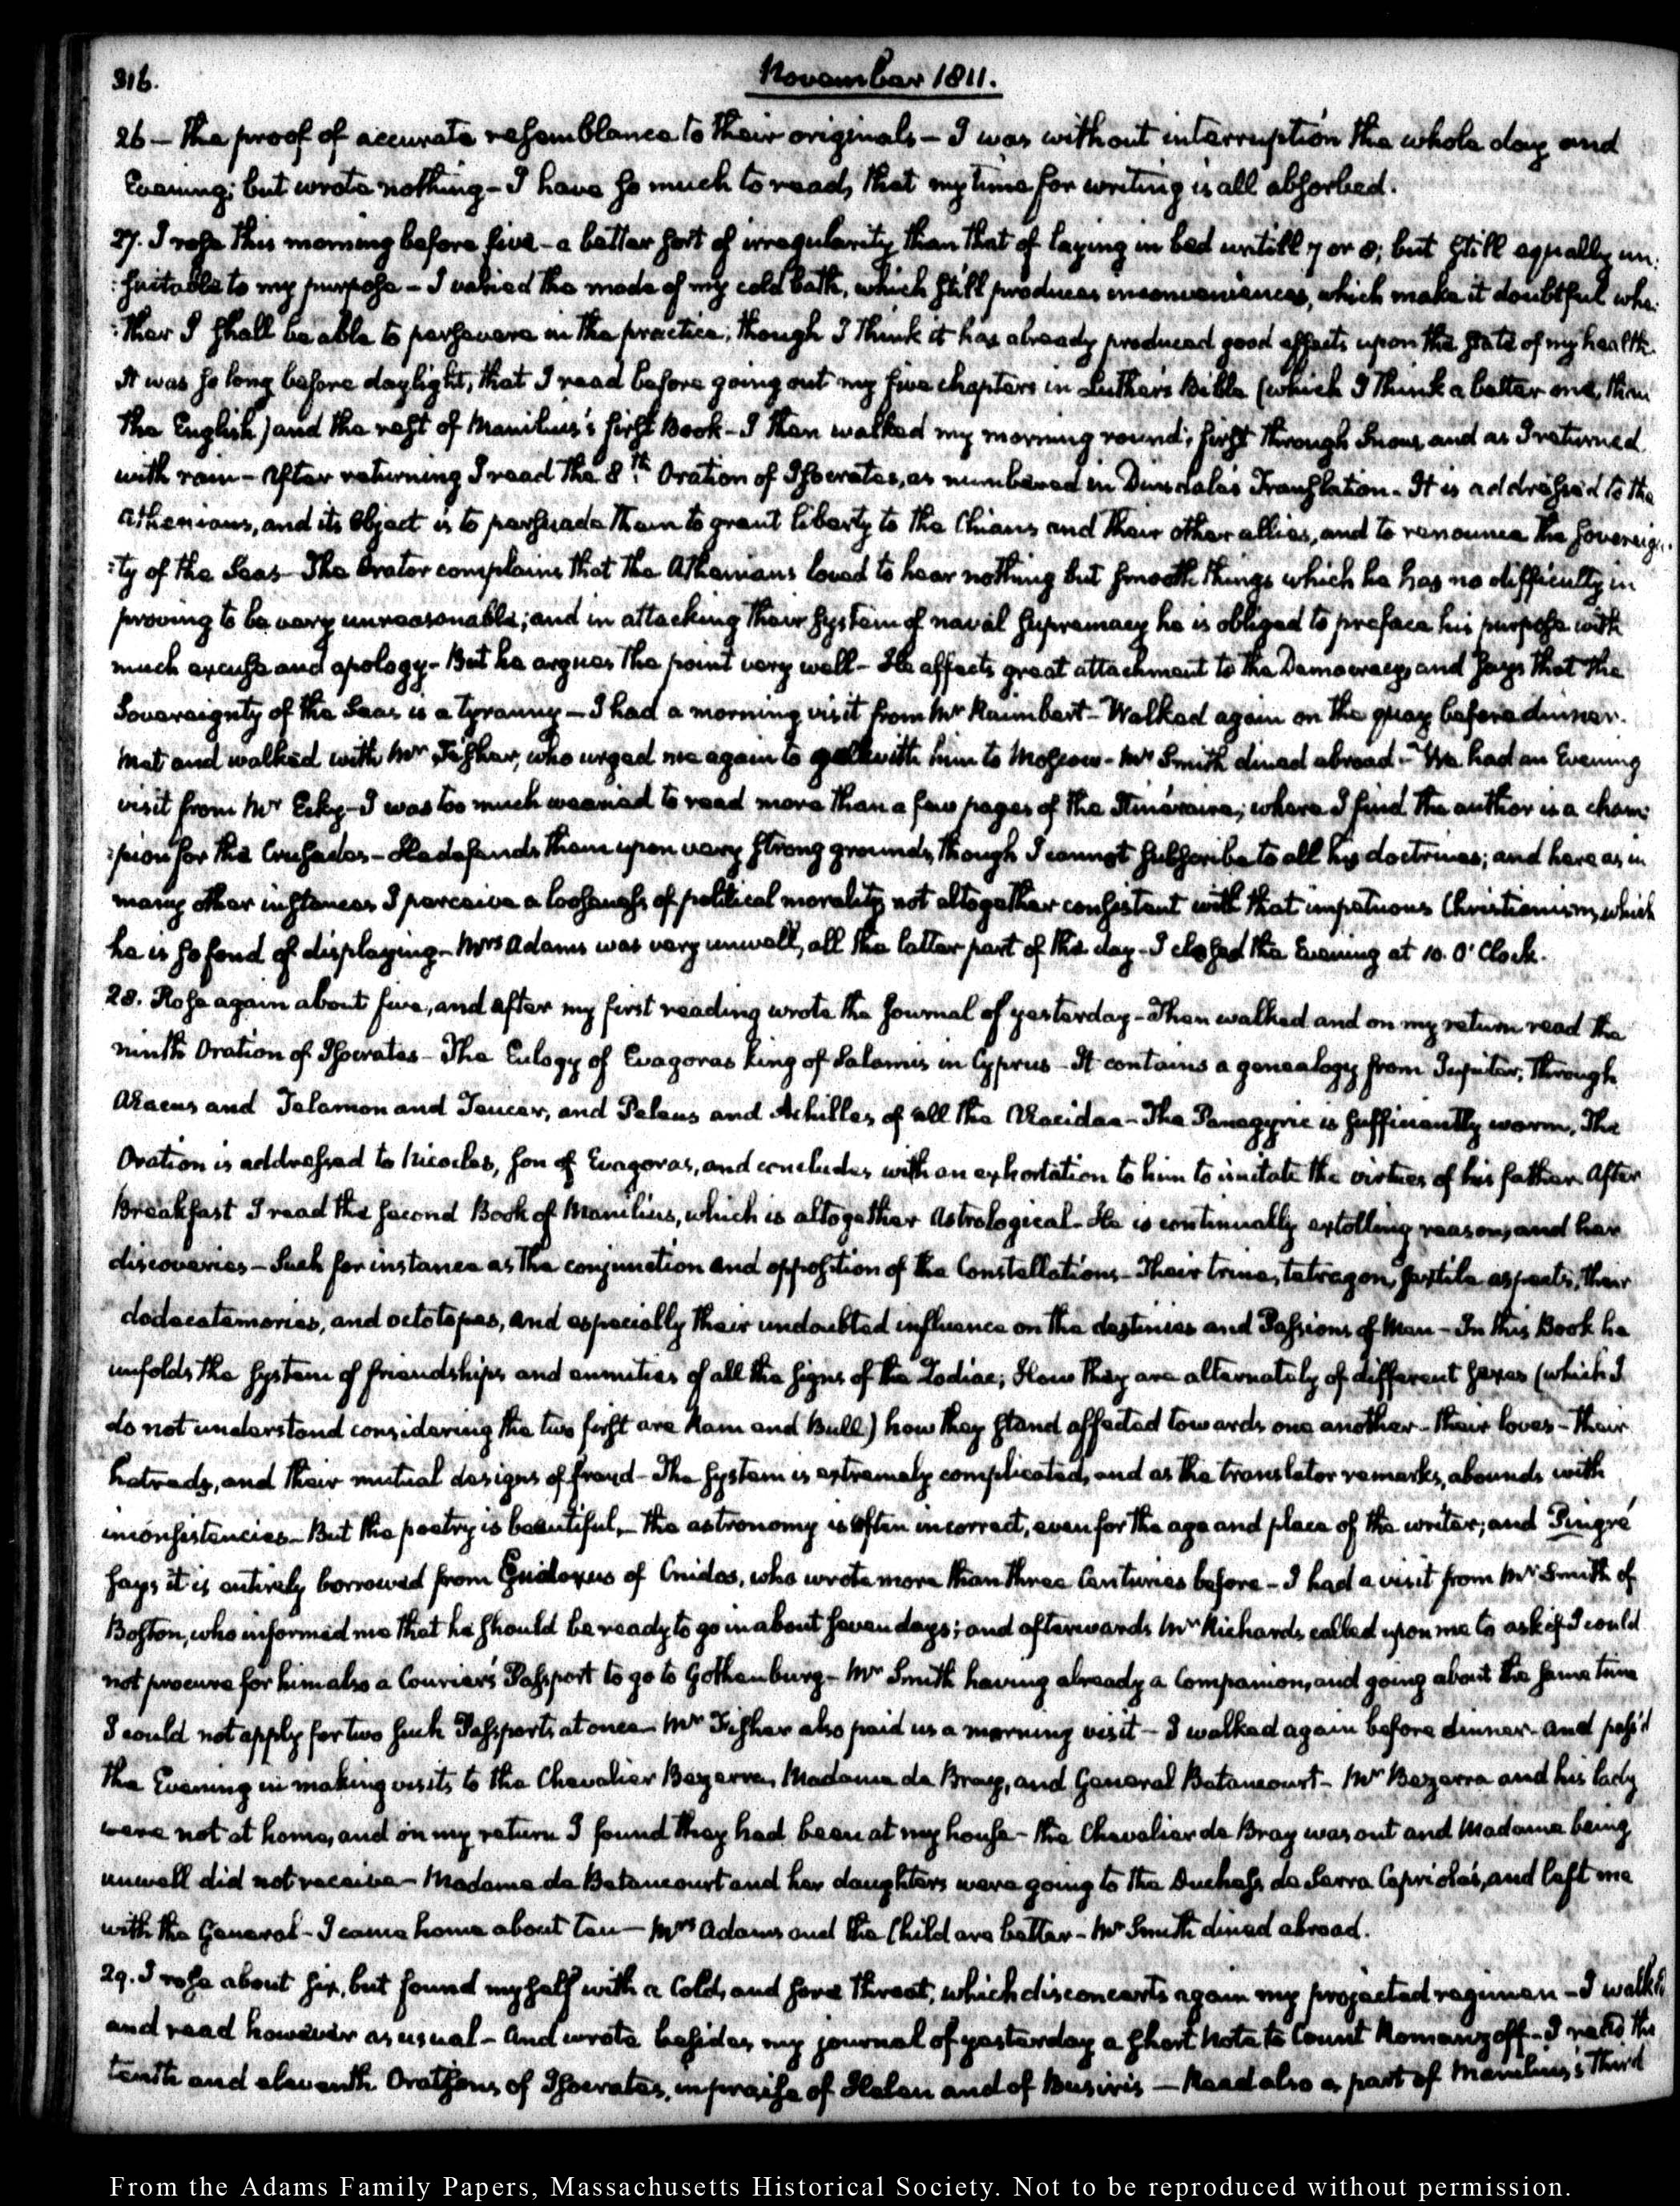 316.
November 1811.
26 — the proof of accurate resemblance to their originals — I was without interruption the whole day and
Evening; but wrote nothing — I have so much to read, that my time for writing is all absorbed.
27. I rose this morning before five — a better sort of irregularity than that of laying in bed untill 7 or 8; but still equally un:
:suitable to my purpose — I varied the mode of my cold bath, which still produces inconveniences, which make it doubtful whe:
:ther I shall be able to persevere in the practice; though I think it has already produced good effects upon the state of my health.
It was so long before daylight, that I read before going out my five chapters in Luther's Bible (which I think a better one, than
the English) and the rest of Manilius's first Book — I then walked my morning round; first through Snow, and as I returned
with rain — After returning I read the 8th. Oration of Isocrates, as numbered in Dinsdale's Translation. It is addressed to the
Athenians, and its object is to persuade them to grant liberty to the Chians and their other allies, and to renounce the Sovereign:
:ty of the Seas — The Orator complains that the Athenians loved to hear nothing but smooth things which he has no difficulty in
proving to be very unreasonable; and in attacking their system of naval supremacy he is obliged to preface his purpose with
much excuse and apology — But he argues the point very well — He affects great attachment to the Democracy, and says that the
Sovereignty of the Seas is a tyranny — I had a morning visit from Mr Raimbert — Walked again on the quay before dinner.
Met and walked with Mr Fisher, who urged me again to go with him to Moscow — Mr Smith dined abroad. — We had an Evening
visit from Mr — I was too much wearied to read more than a few pages of the Itinéraire; where I find the author is a cham:
:pion for the Crusades — He defends them upon very strong grounds, though I cannot subscribe to all his doctrines; and here as in
many other instances I perceive a looseness of political morality, not altogether consistent with that impetuous Christianism, which
he is so fond of displaying — Mrs Adams was very unwell, all the latter part of the day — I closed the Evening at 10. O'Clock.
28. Rose again about five, and after my first reading wrote the Journal of yesterday — Then walked and on my return read the
ninth Oration of Isocrates — The Eulogy of Evagoras King of Salamis in Cyprus — It contains a genealogy from Jupiter, through
Æacus and Telamon and Teucer, and Peleus and Achilles, of all the Æacidae — The Panegyric is sufficiently warm, The
Oration is addressed to Nicocles, son of Evagoras, and concludes with an exhortation to him to imitate the virtues of his father. After
Breakfast I read the second Book of Manilius, which is altogether Astrological — He is continually extolling reason, and her
discoveries — Such for instance as the conjunction and opposition of the Constellations — Their trine, tetragon, sextile aspects, their
dodecatemories, and octotopes, and especially their undoubted influence on the destinies and Passions of Men — In this Book he
unfolds the system of friendships and enmities of all the signs of the Zodiac; How they are alternately of different sexes (which I
do not understand considering the two first are Ram and Bull) how they stand affected towards one another — their loves — their
hatreds, and their mutual designs of fraud — The system is extremely complicated, and as the translator remarks, abounds with
inconsistencies — But the poetry is beautiful, — the astronomy is often incorrect, even for the age and place of the writer; and Pingré
says it is entirely borrowed from Eudoxus of Cnidos, who wrote more than three Centuries before — I had a visit from Mr Smith of
Boston, who informed me that he should be ready to go in about seven days; and afterwards Mr Richards called upon me to ask if I could
not procure for him also a Courier's Passport to go to Gothenburg — Mr Smith having already a Companion, and going about the same time
I could not apply for two such Passports at once — Mr Fisher also paid us a morning visit — I walked again before dinner — and pass'd
the Evening in making visits to the Chevalier Bezerra, Madame de Bray, and General Betancourt — Mr Bezerra and his lady
were not at home, and on my return I found they had been at my house — the Chevalier de Bray was out and Madame being
unwell did not receive — Madame de Betancourt and her daughters were going to the Duchess de Serra Capriola's, and left me
with the General — I came home about ten — Mrs Adams and the Child are better — Mr Smith dined abroad.
29. I rose about six, but found myself with a Cold, and sore throat, which disconcerts again my projected regimen — I walk'd
and read however as usual — And wrote besides my journal of yesterday a short Note to Count Romanzoff — I read the
tenth and eleventh Orations of Isocrates, in praise of Helen and of Busiris — Read also a part of Manilius's Third
From the Adams Family Papers, Massachusetts Historical Society. Not to be reproduced without permission.